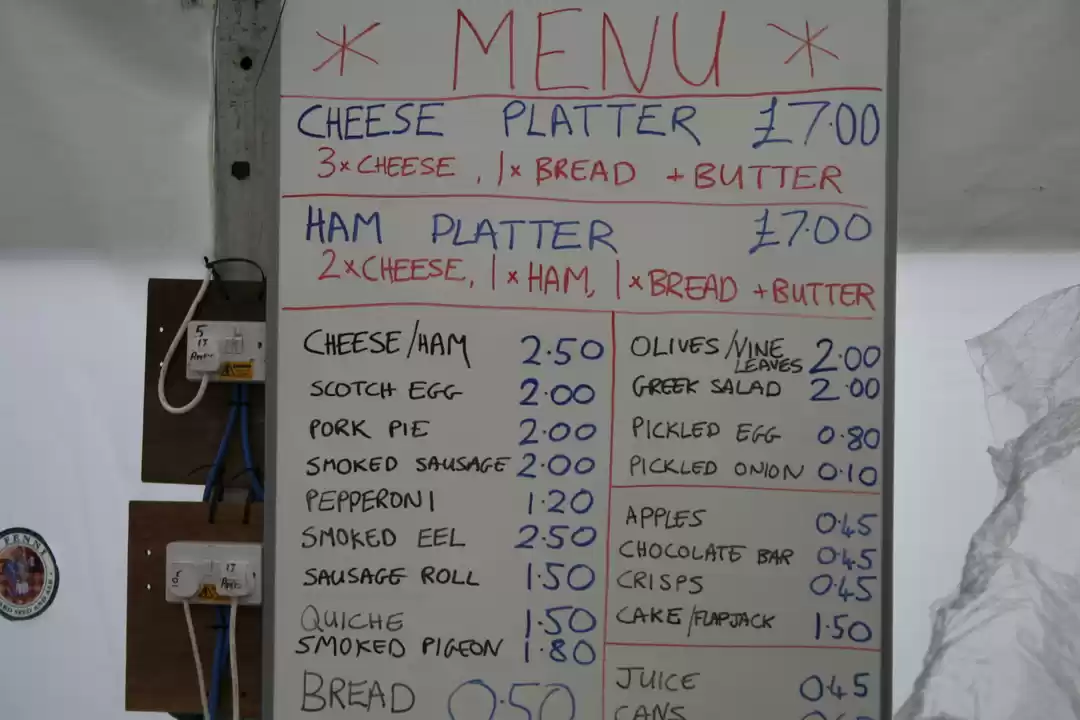 * MENU *
CHEESE PLATTER £7.00
3x CHEESE, 1x BREAD + BUTTER
HAM PLATTER £7.00
2x CHEESE, 1x HAM, 1x BREAD + BUTTER
CHEESE/HAM 2.50
SCOTCH EGG 2.00
PORK PIE 2.00
SMOKED SAUSAGE 2.00
PEPPERONI 1.20
SMOKED EEL 2.50
SAUSAGE ROLL 1.50
QUICHE 1.50
SMOKED PIGEON 1.80
BREAD 0.50
OLIVES/VINE 2.00
LEAVES
GREEK SALAD 2.00
PICKLED EGG 0.80
PICKLED ONION 0.10
APPLES 0.45
CHOCOLATE BAR 0.45
CRISPS 0.45
CAKE/FLAPJACK 1.50
JUICE 0.45
CANS